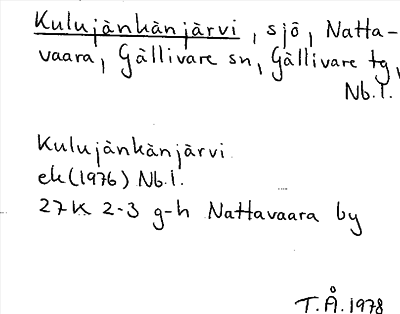 Kulujänkänjärvi, sjö, Natta-
vaara, Gällivare sn, Gällivare tg,
Nb.l.
Kulujänkänjärvi
ek (1976) Nb.l.
27K 2-3 g-h Nattavaara by
T.Å. 1978